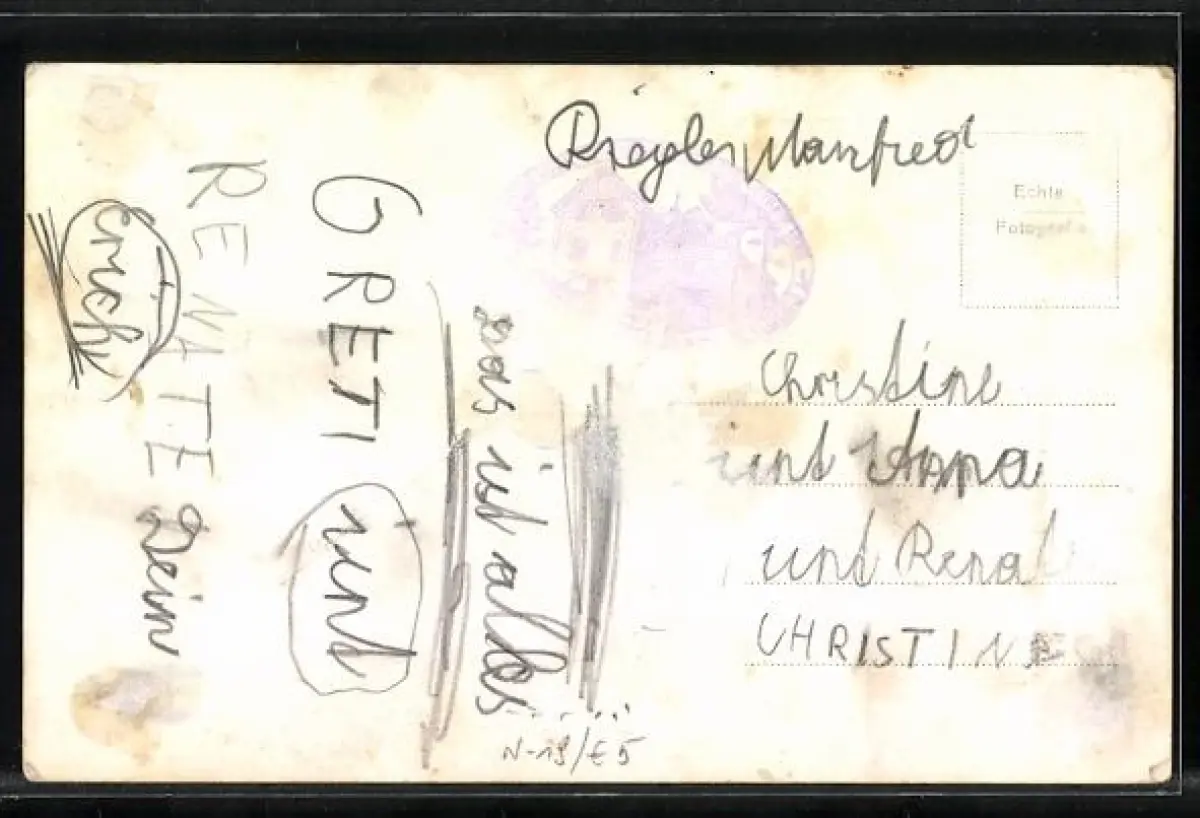 Riegler Manfred
Echte
Fotografie
Christine
und Anna
und Renat
CHRISTINE
das ist alles
GRETI und
RENATE Dein
erich
N-19/E5